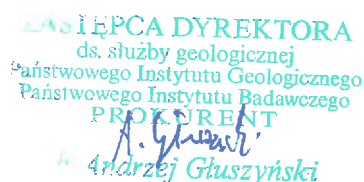 ZASTĘPCA DYREKTORA
ds. służby geologicznej
Państwowego Instytutu Geologicznego
Państwowego Instytutu Badawczego
PROKURENT
A. Głuszyński
Andrzej Głuszyński